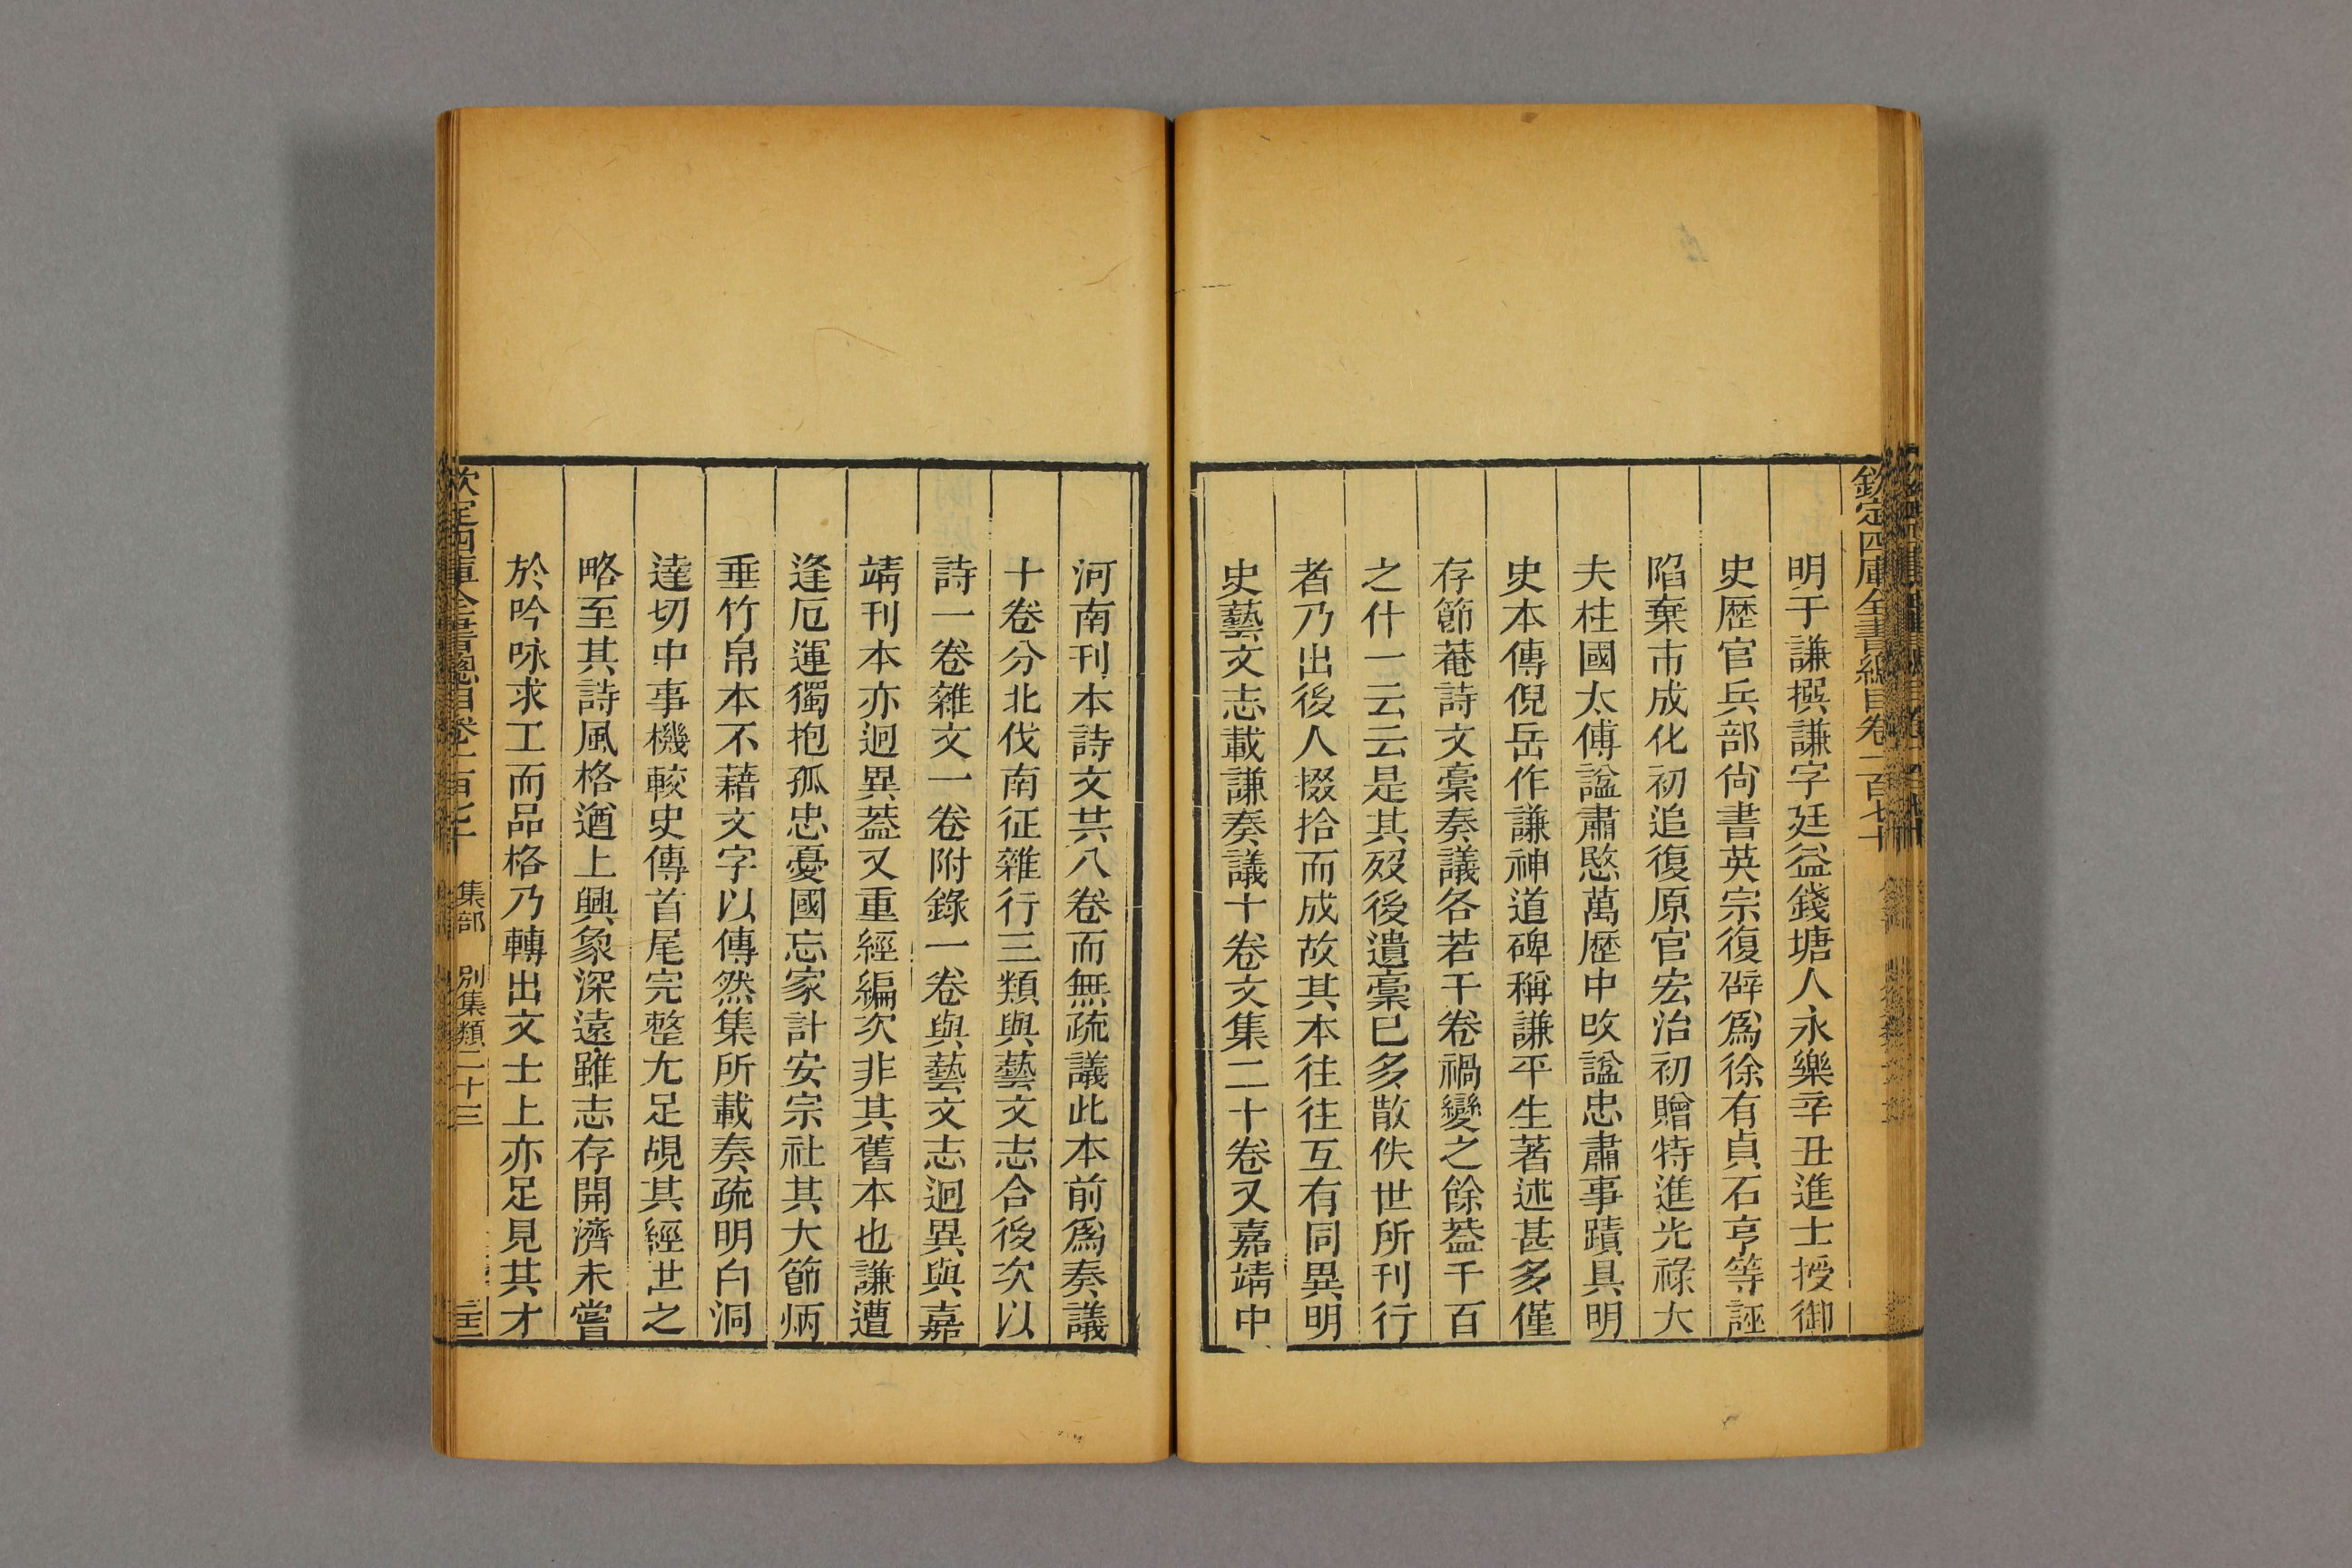 欽定四庫全書總目卷一百七十
明于謙撰謙字廷益錢塘人永樂辛丑進士授御
史歷官兵部尚書英宗復辟爲徐有貞石亨等誣
陷棄市成化初追復原官宏治初贈特進光祿大
夫柱國太傅諡肅愍萬歷中改諡忠肅事蹟具明
史本傳倪岳作謙神道碑稱謙平生著述甚多僅
存節菴詩文稾奏議各若干卷禍變之餘葢千百
之什一云云是其歿後遺稾已多散佚世所刊行
者乃出後人掇拾而成故其本往往互有同異明
史藝文志載謙奏議十卷文集二十卷又嘉靖中
河南刊本詩文共八卷而無疏議此本前爲奏議
十卷分北伐南征雜行三類與藝文志合後次以
詩一卷雜文一卷附錄一卷與藝文志迥異與嘉
靖刊本亦迥異葢又重經編次非其舊本也謙遭
逢厄運獨抱孤忠憂國忘家計安宗社其大節炳
垂竹帛本不藉文字以傳然集所載奏疏明白洞
達切中事機較史傳首尾完整尤足覘其經世之
略至其詩風格遒上興象深遠雖志存開濟未嘗
於吟咏求工而品格乃轉出文士上亦足見其才
欽定四庫全書總目卷一百七十 集部 別集類二十三